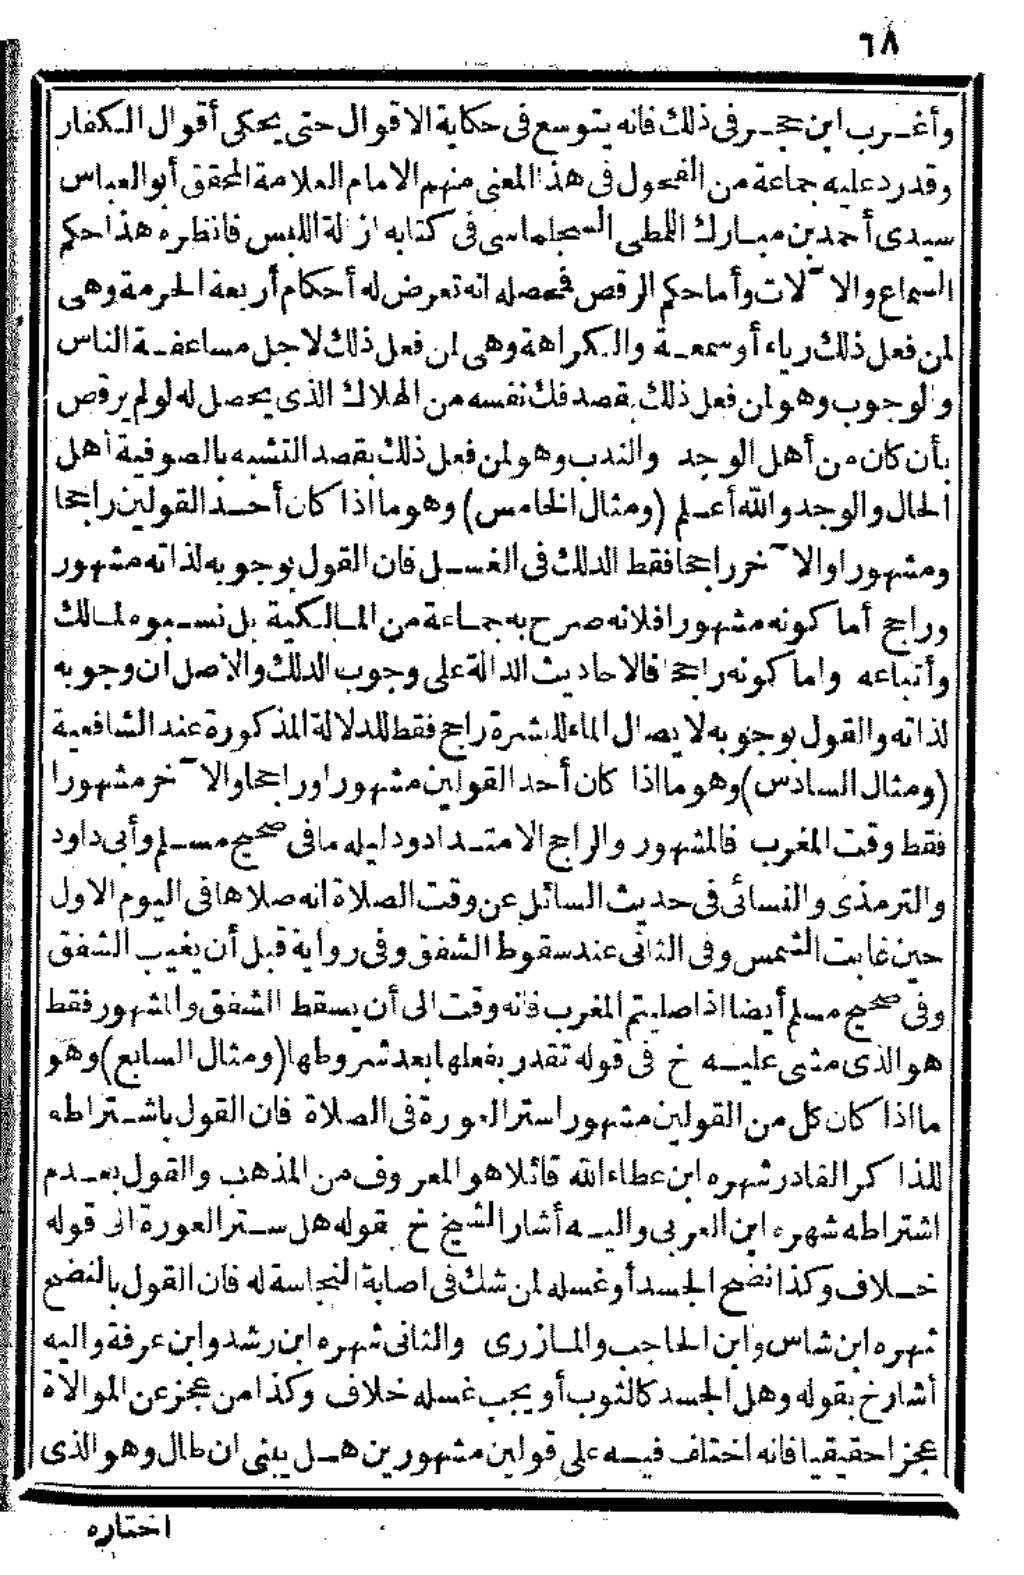 ٦٨
وأغرب ابن حجر فى ذلك فانه يتوسع فى حكاية الاقوال حتى يحكى أقوال الكفار
وقد رد عليه جماعة من الفحول فى هذا المعنى منهم الامام العلامة المحقق أبو العباس
سيدى أحمد بن مبارك اللمطى السجلماسى فى كتابه ازالة اللبس فانظره هذا حكم
السماع والا̃لات وأما حكم الرقص فمحصله انه تعرض له أحكام أربعة الحرمة وهى
لمن فعل ذلك رياء أو سمعة والكراهة وهى لمن فعل ذلك لاجل مساعفة الناس
والوجوب وهو لمن فعل ذلك بقصد فك نفسه من الهلاك الذى يحصل له لو لم يرقص
بأن كان من أهل الوجد والندب وهو لمن فعل ذلك بقصد التشبه بالصوفية أهل
الحال والوجد والله أعلم (ومثال الخامس) وهو ما اذا كان أحد القولين راجحا
ومشهورا والا̃خر راجحا فقط الدلك فى الغسل فان القول بوجوبه لذاته مشهور
وراجح أما كونه مشهورا فلانه صرح به جماعة من المالكية بل نسبوه لمالك
وأتباعه واما كونه راجحا فالاحاديث الدالة على وجوب الدلك والاصل أن وجوبه
لذاته والقول بوجوبه لايصال الماء للبشرة راجح فقط للدلالة المذكورة عند الشافعية
(ومثال السادس) وهو ما اذا كان أحد القولين مشهورا وراجحا والا̃خر مشهورا
فقط وقت المغرب فالمشهور والراجح الامتداد ودليله ما فى صحيح مسلم وأبى داود
والترمذى والنسائى فى حديث السائل عن وقت الصلاة انه صلاها فى اليوم الاول
حين غابت الشمس وفى الثانى عند سقوط الشفق وفى رواية قبل أن يغيب الشفق
وفى صحيح مسلم أيضا اذا صليتم المغرب فانه وقت الى أن يسقط الشفق والمشهور فقط
هو الذى مشى عليه خ فى قوله تقدر بفعلها بعد شروطها (ومثال السابع) وهو
ما اذا كان كل من القولين مشهورا ستر العورة فى الصلاة فان القول باشتراطه
للذاكر القادر شهره ابن عطاء الله قائلا هو المعروف من المذهب والقول بعدم
اشتراطه شهره ابن العربى واليه أشار الشيخ خ بقوله هل ستر العورة الى قوله
خلاف وكذا نضح الجسد أو غسله لمن شك فى اصابة النجاسة له فان القول بالنضح
شهره ابن شاس وابن الحاجب والمازرى والثانى شهره ابن رشد وابن عرفة واليه
أشار خ بقوله وهل الجسد كالثوب أو يجب غسله خلاف وكذا من عجز عن الموالاة
عجزا حقيقيا فانه اختلف فيه على قولين مشهورين هل يبنى ان طال وهو الذى
اختاره